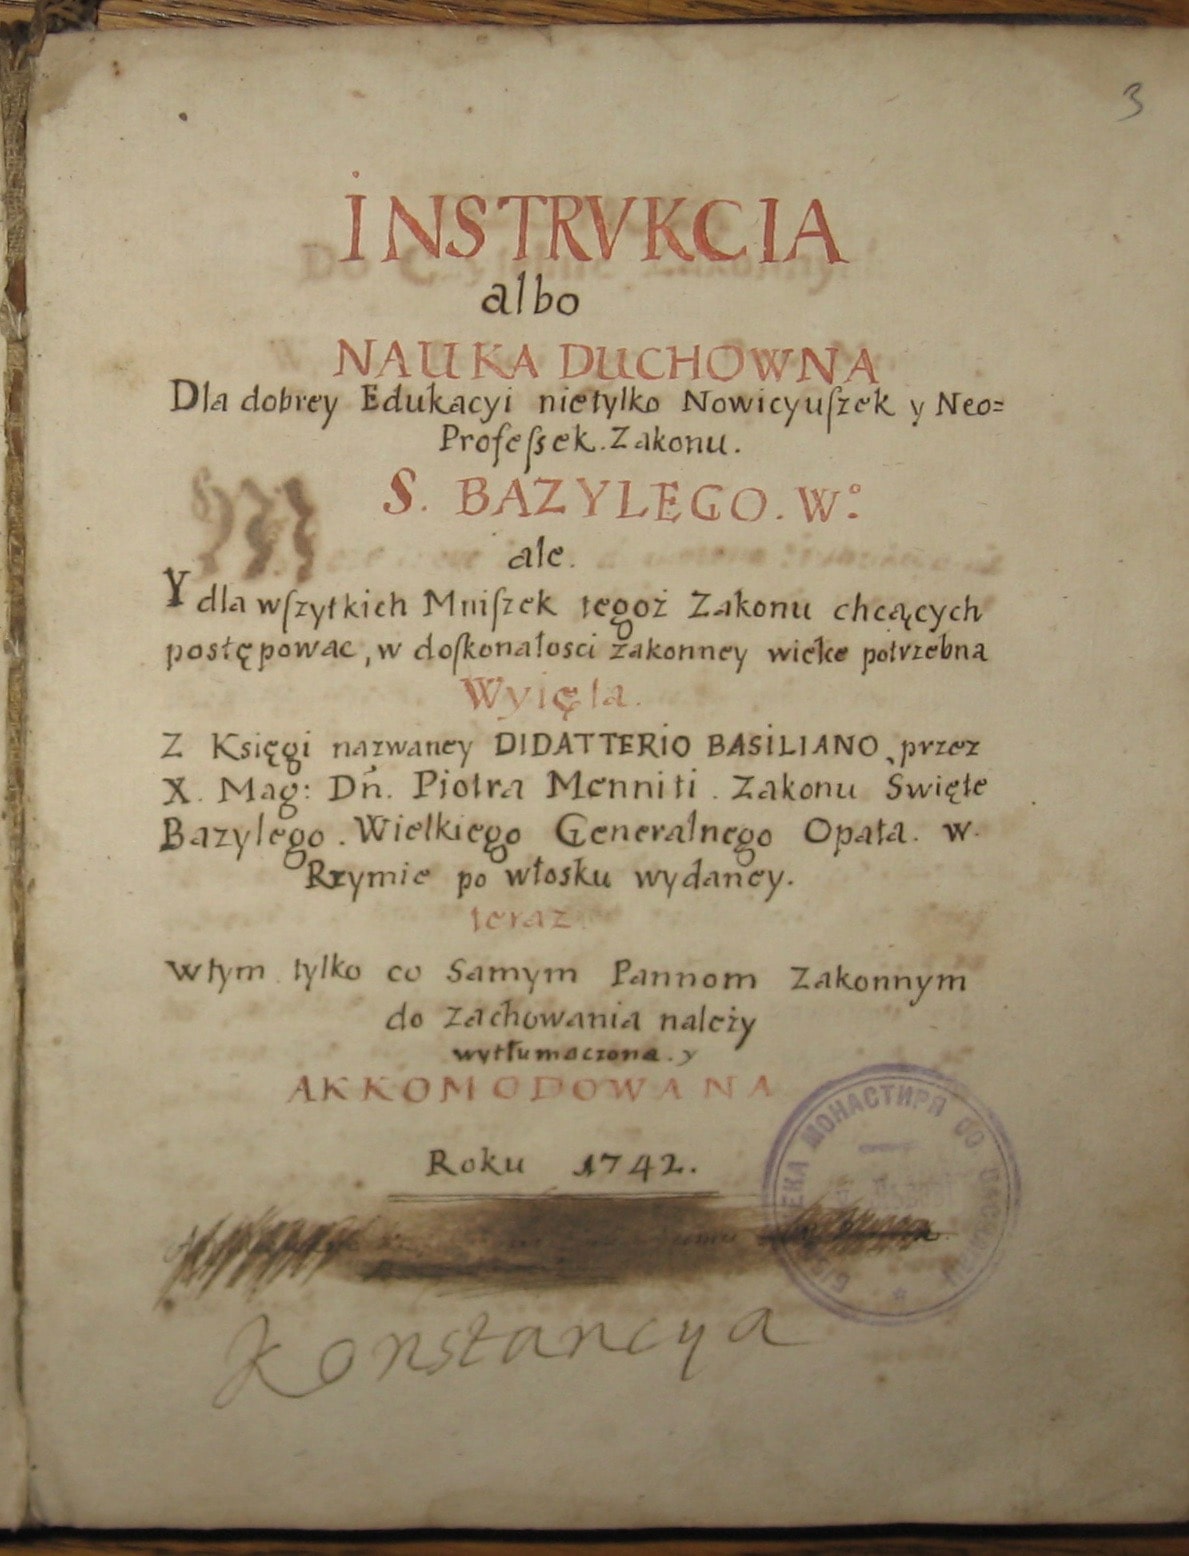 3
INSTRVKCIA
albo
NAUKA DUCHOWNA
Dla dobrey Edukacyi nietylko Nowicyuſzek y Neo=
Profeſsek. Zakonu.
S. BAZYLEGO. Wº:
ale.
Y dla wſzytkich Mniſzek tegoż Zakonu chcących
postępowac, w doſkonałosci zakonney wielce potrzebna
Wyięta.
Z Księgi nazwaney DIDATTERIO BASILIANO, przez
X. Mag: Dń. Piotra Menniti. Zakonu Swięte
Bazylego. Wielkiego Generalnego Opata. w.
Rzymie po włosku wydaney.
teraz.
Wtym tylko co Samym Pannom Zakonnym
do zachowania należy
wytłumaczona. y
AKKOMODOWANA
Roku 1742.
Konstancya
МОНАСТИРЯ